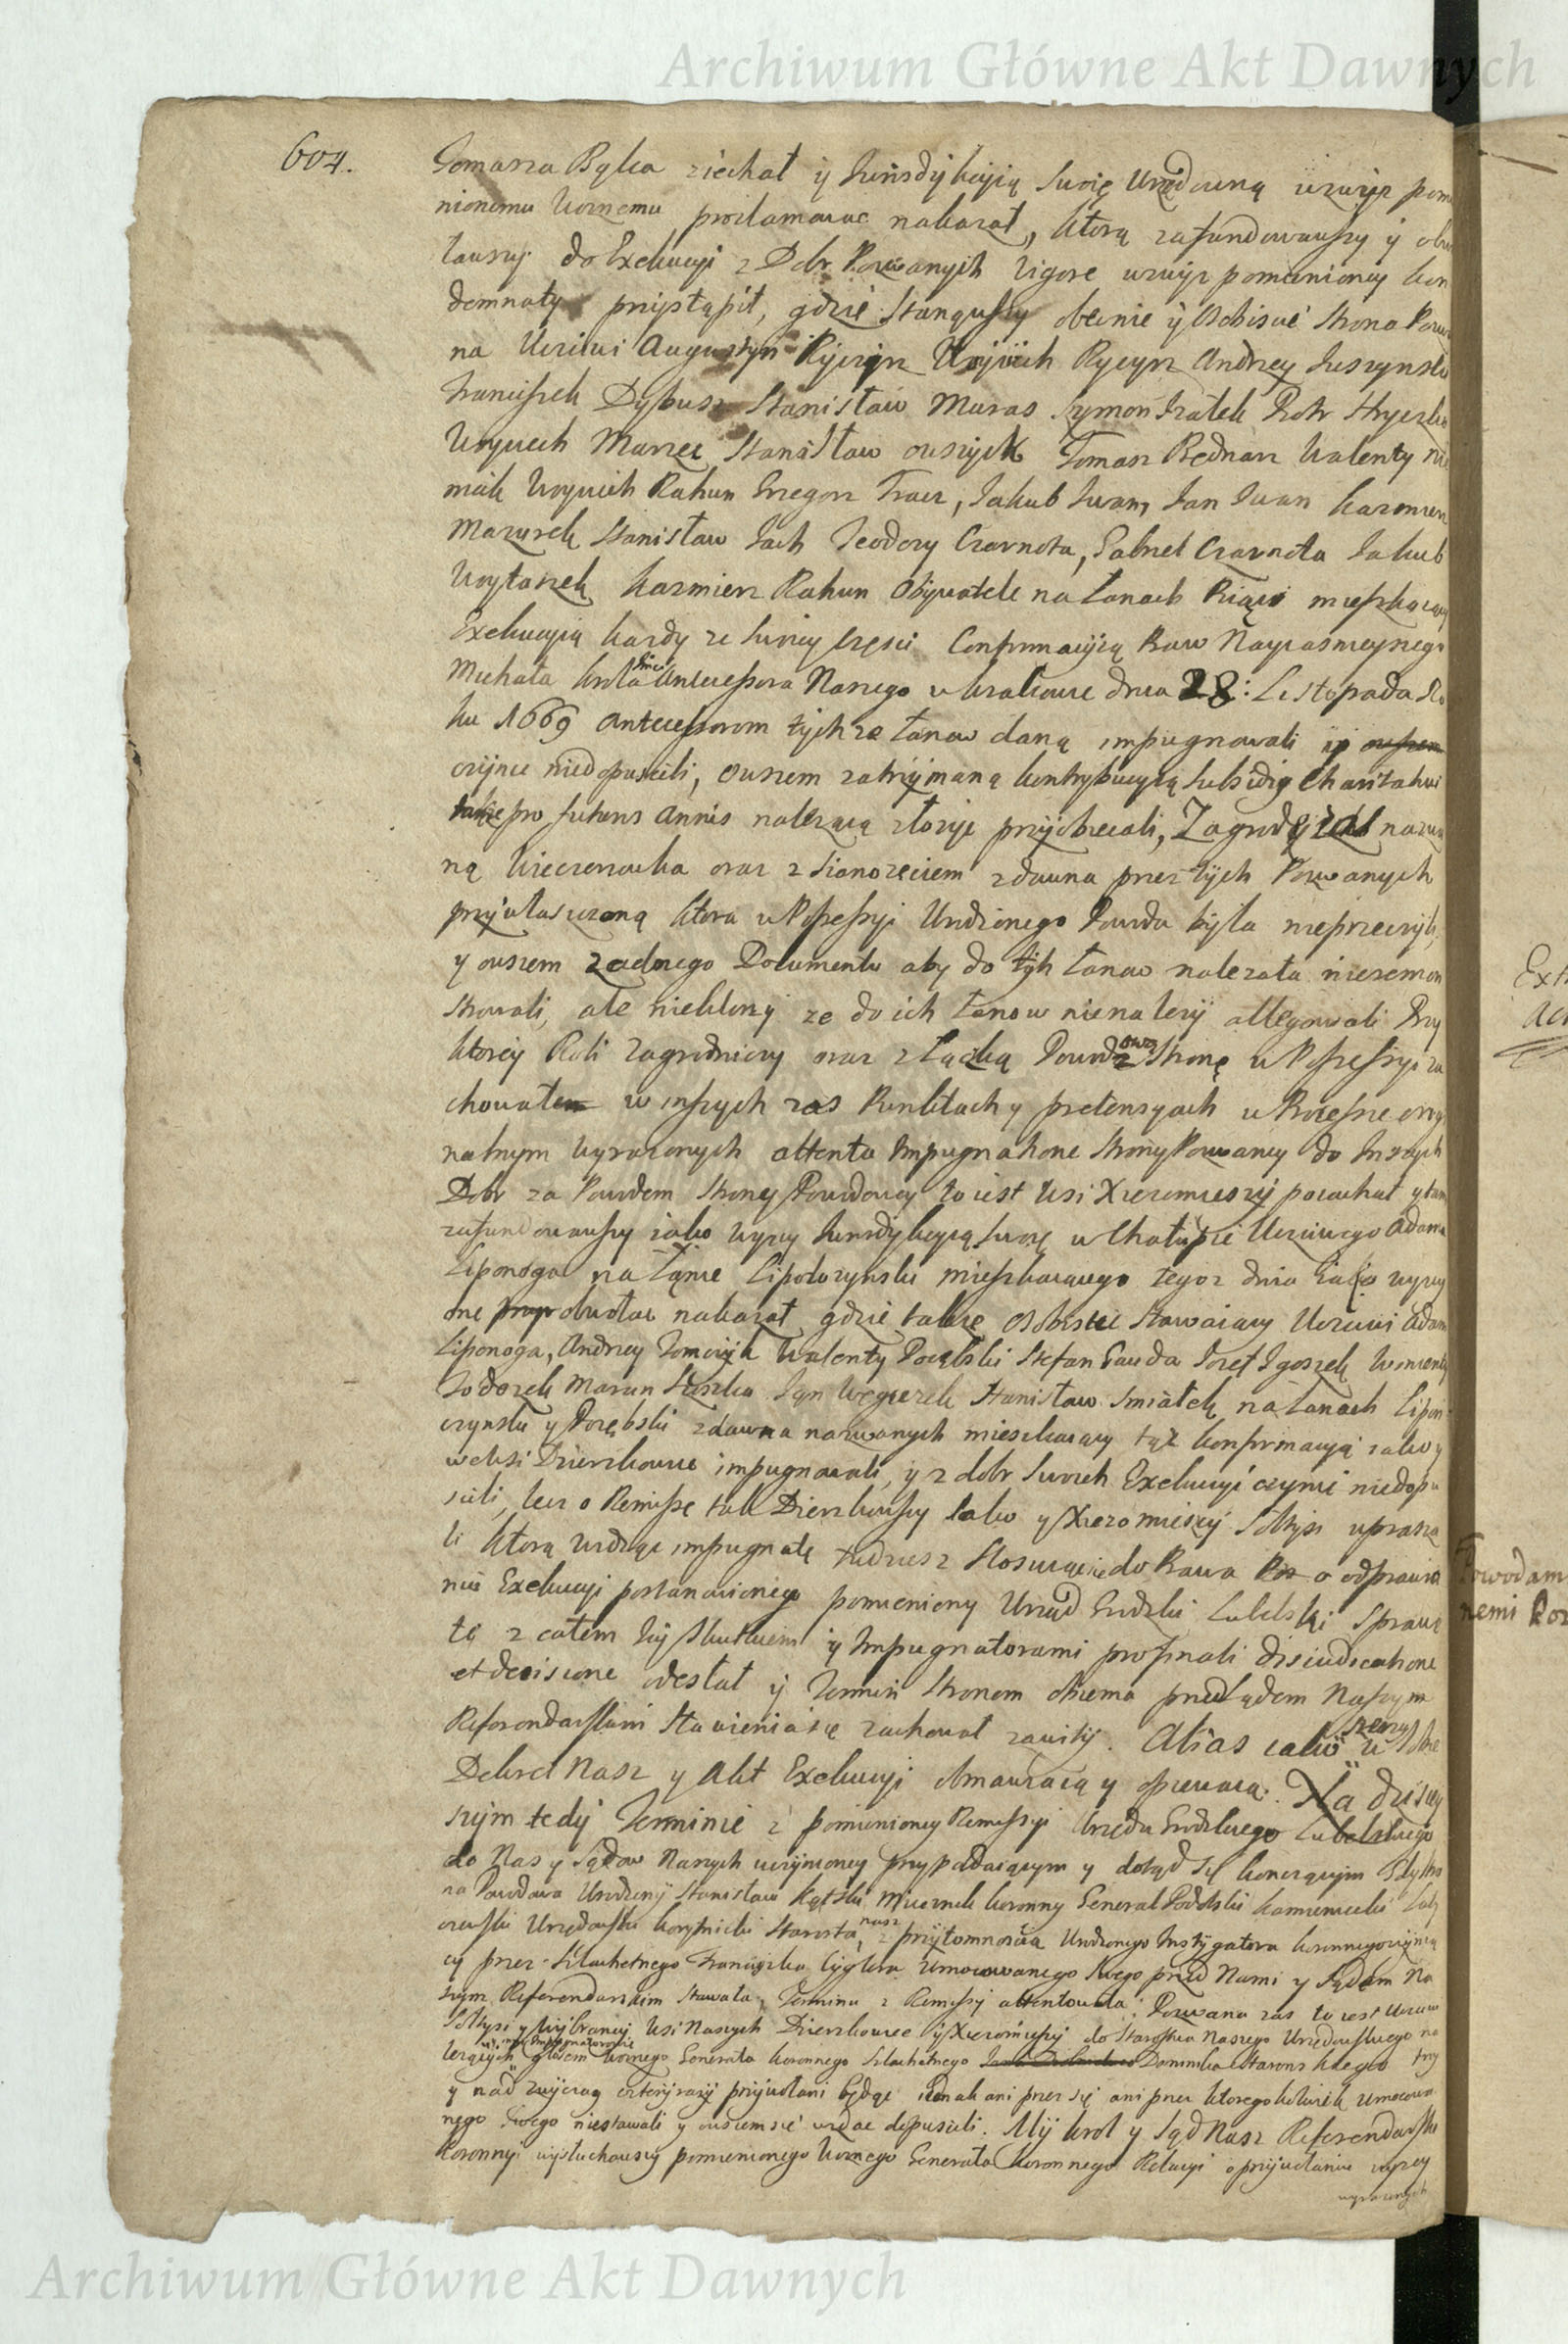 Archiwum Główne Akt Dawnych
604.
Tomasza Bąka ziechał y Juńsdykcyią swoię Urzędowną wzwyż pom
nionemu Woznemu proclamowac nakazał, ktorą zafundowawszy y obw
ławszy do Exekucyi z Dobr Pozwanych Vigore wzwyż pomienioney kon
demnaty przystąpił, gdzie stanąwszy obecnie y Osobiscie strona Pozwa
na Uczciwi Augustyn Rycerz Woyciech Rycyrz Andrzey Juszynski
Franciszek Dybusz Stanisław Maras Szymon Piotr Stryczka
Woyciech Marzec Stanisław Tomasz Bednarz Walenty
Woyciech Rahun Grzegorz Jakub Iwan, Jan Iwan Kazimierz
Mazurek Stanisław Jach Teodory Czarnota, Gabriel Czarnota Jakub
Woytaszek Kazmierz Rahun Obywatele na Łanach mieszkaiący
Exekucyią kazdy ze swoiey częsci Confirmacyią Praw Nayiasnieyszego
Michała Krola Antecessora Naszego w Krakowie dnia 28: Listopada Ro
ku 1669 Antecessorom tychze Łanow daną impugnowali y
czynic niedopuscili, owszem zatrzymaną kontrybucyią Subsidiy Charitativi
także pro futuris Annis nalezącą złozyc przyobiecali, Zagrodę zas nazwa
ną Wieczorowka oraz z Sianozęciem zdawna przez tych Pozwanych
przywłaszczoną ktora w Possessyi Urodzonego Powoda była nieprzeczyli,
y owszem zadnego Documentu aby do tych Łanow nalezała niezemon
strowali, ale niektorzy ze do ich Łanow nienalezy allegowali Przy
ktorey Roli Zagrodniczy oraz z Łącką Powodową Stronę w Possessyi za
chował w inszych zas Punktach y pretensyach w Processie oryg
nalnym wyrazonych attenta Impugnatione Strony Pozwaney do Inszych
Dobr za Powodem Strony Powodowey to iest Wsi Xięzomieszy poiechał y tam
zafundowawszy iako wyzey Jurysdykcyią swoię w Chałupie Uczciwego Adama
Liponoga na Łanie Lipoczynski mieszkaiącego tegoz dnia wyzey
one obwołac nakazał gdzie takze Osobiscie Stawaiący Uczciwi Adam
Liponoga, Andrzey Tomczyk Walenty Porębski Stefan Gawda Jozef Igoszek Wincenty
Todorek Marcin Staszka Jan Węgierek Stanisław Smiałek na Łanach Lipon
czynski y Porębski zdawna nazwanych mieszkaiący tąż konfirmacyą iako y
we Wsi Dzierzkowice impugnowali, y z dobr swoich Exekucyi czynic niedopu
scili, lecz o Remissę tak Dzierzkowscy iako y Xięzomiescy Sołtysi uprasza
li ktorą widząc impugnatę tudziesz Stosuiąc się do Prawa o odprawia
niu Exekucyi postanowionego pomieniony Urząd Grodzki Lubelski Sprawę
tę z całem Jey Skutkiem y Impugnatorami pro finali disiudicatione
et decisione odesłał y Termin Stronom obiema przed Sądem Naszym
Referendarskim Stawienia się zachował zawity. Alias iako szerzy w sobie
Dekret Nasz y Akt Exekucyi obmawiaią y opiewaią: Na dzisiey
szym tedy Terminie z pomienioney Remissyi Urzędu Grodzkiego Lubelskiego
do Nas y Sądow Naszych uczynioney przypadaiącym y dotąd się konczącym Gdy Stro
na Powodowa Urodzony Stanisław Kątski Miecznik Koronny Generał Podolski Kamieniecki Laty
czewski Urzędowski Korytnicki Starosta, nasz z przytomnoscią Urodzonego Instygatora Koronnego czynią
cy przez Szlachetnego Franciszka Cyglera Umocowanego Swego przed Nami y Sądem Na
szym Referendarskim Stawała, Terminu z Remissy attentowała: Pozwana zas to iest Uczciwi
Sołtysi y Wybrancy Wsi Naszych Dzierzkowice y Xięzomieszy do Starostwa Naszego Urzędowskiego na
lezących głosem Woznego Generała Koronnego Szlachetnego Dominika trzy
y nad zwyczay cztery razy przywołani będąc iednak ani przez się ani przez ktoregokolwiek Umocowa
nego Swego niestawali y owszem się wzdac dopuscili. My Krol y Sąd Nasz Referendarski
Koronny wysłuchawszy pomienionego Woznego Generała Koronnego Relacyi o przywołaniu wyzey
wyrazonych
Powodam
Archiwum Główne Akt Dawnych